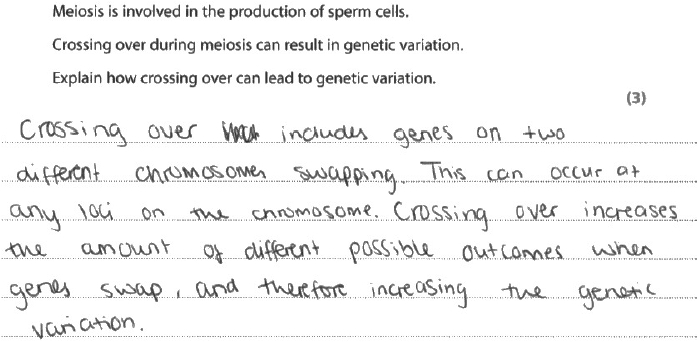 Meiosis is involved in the production of sperm cells.
Crossing over during meiosis can result in genetic variation.
Explain how crossing over can lead to genetic variation.
(3)
Crossing over includes genes on two
different chromosomes swapping. This can occur at
any loci on the chromosome. Crossing over increases
the amount of different possible outcomes when
genes swap, and therefore increasing the genetic
variation.